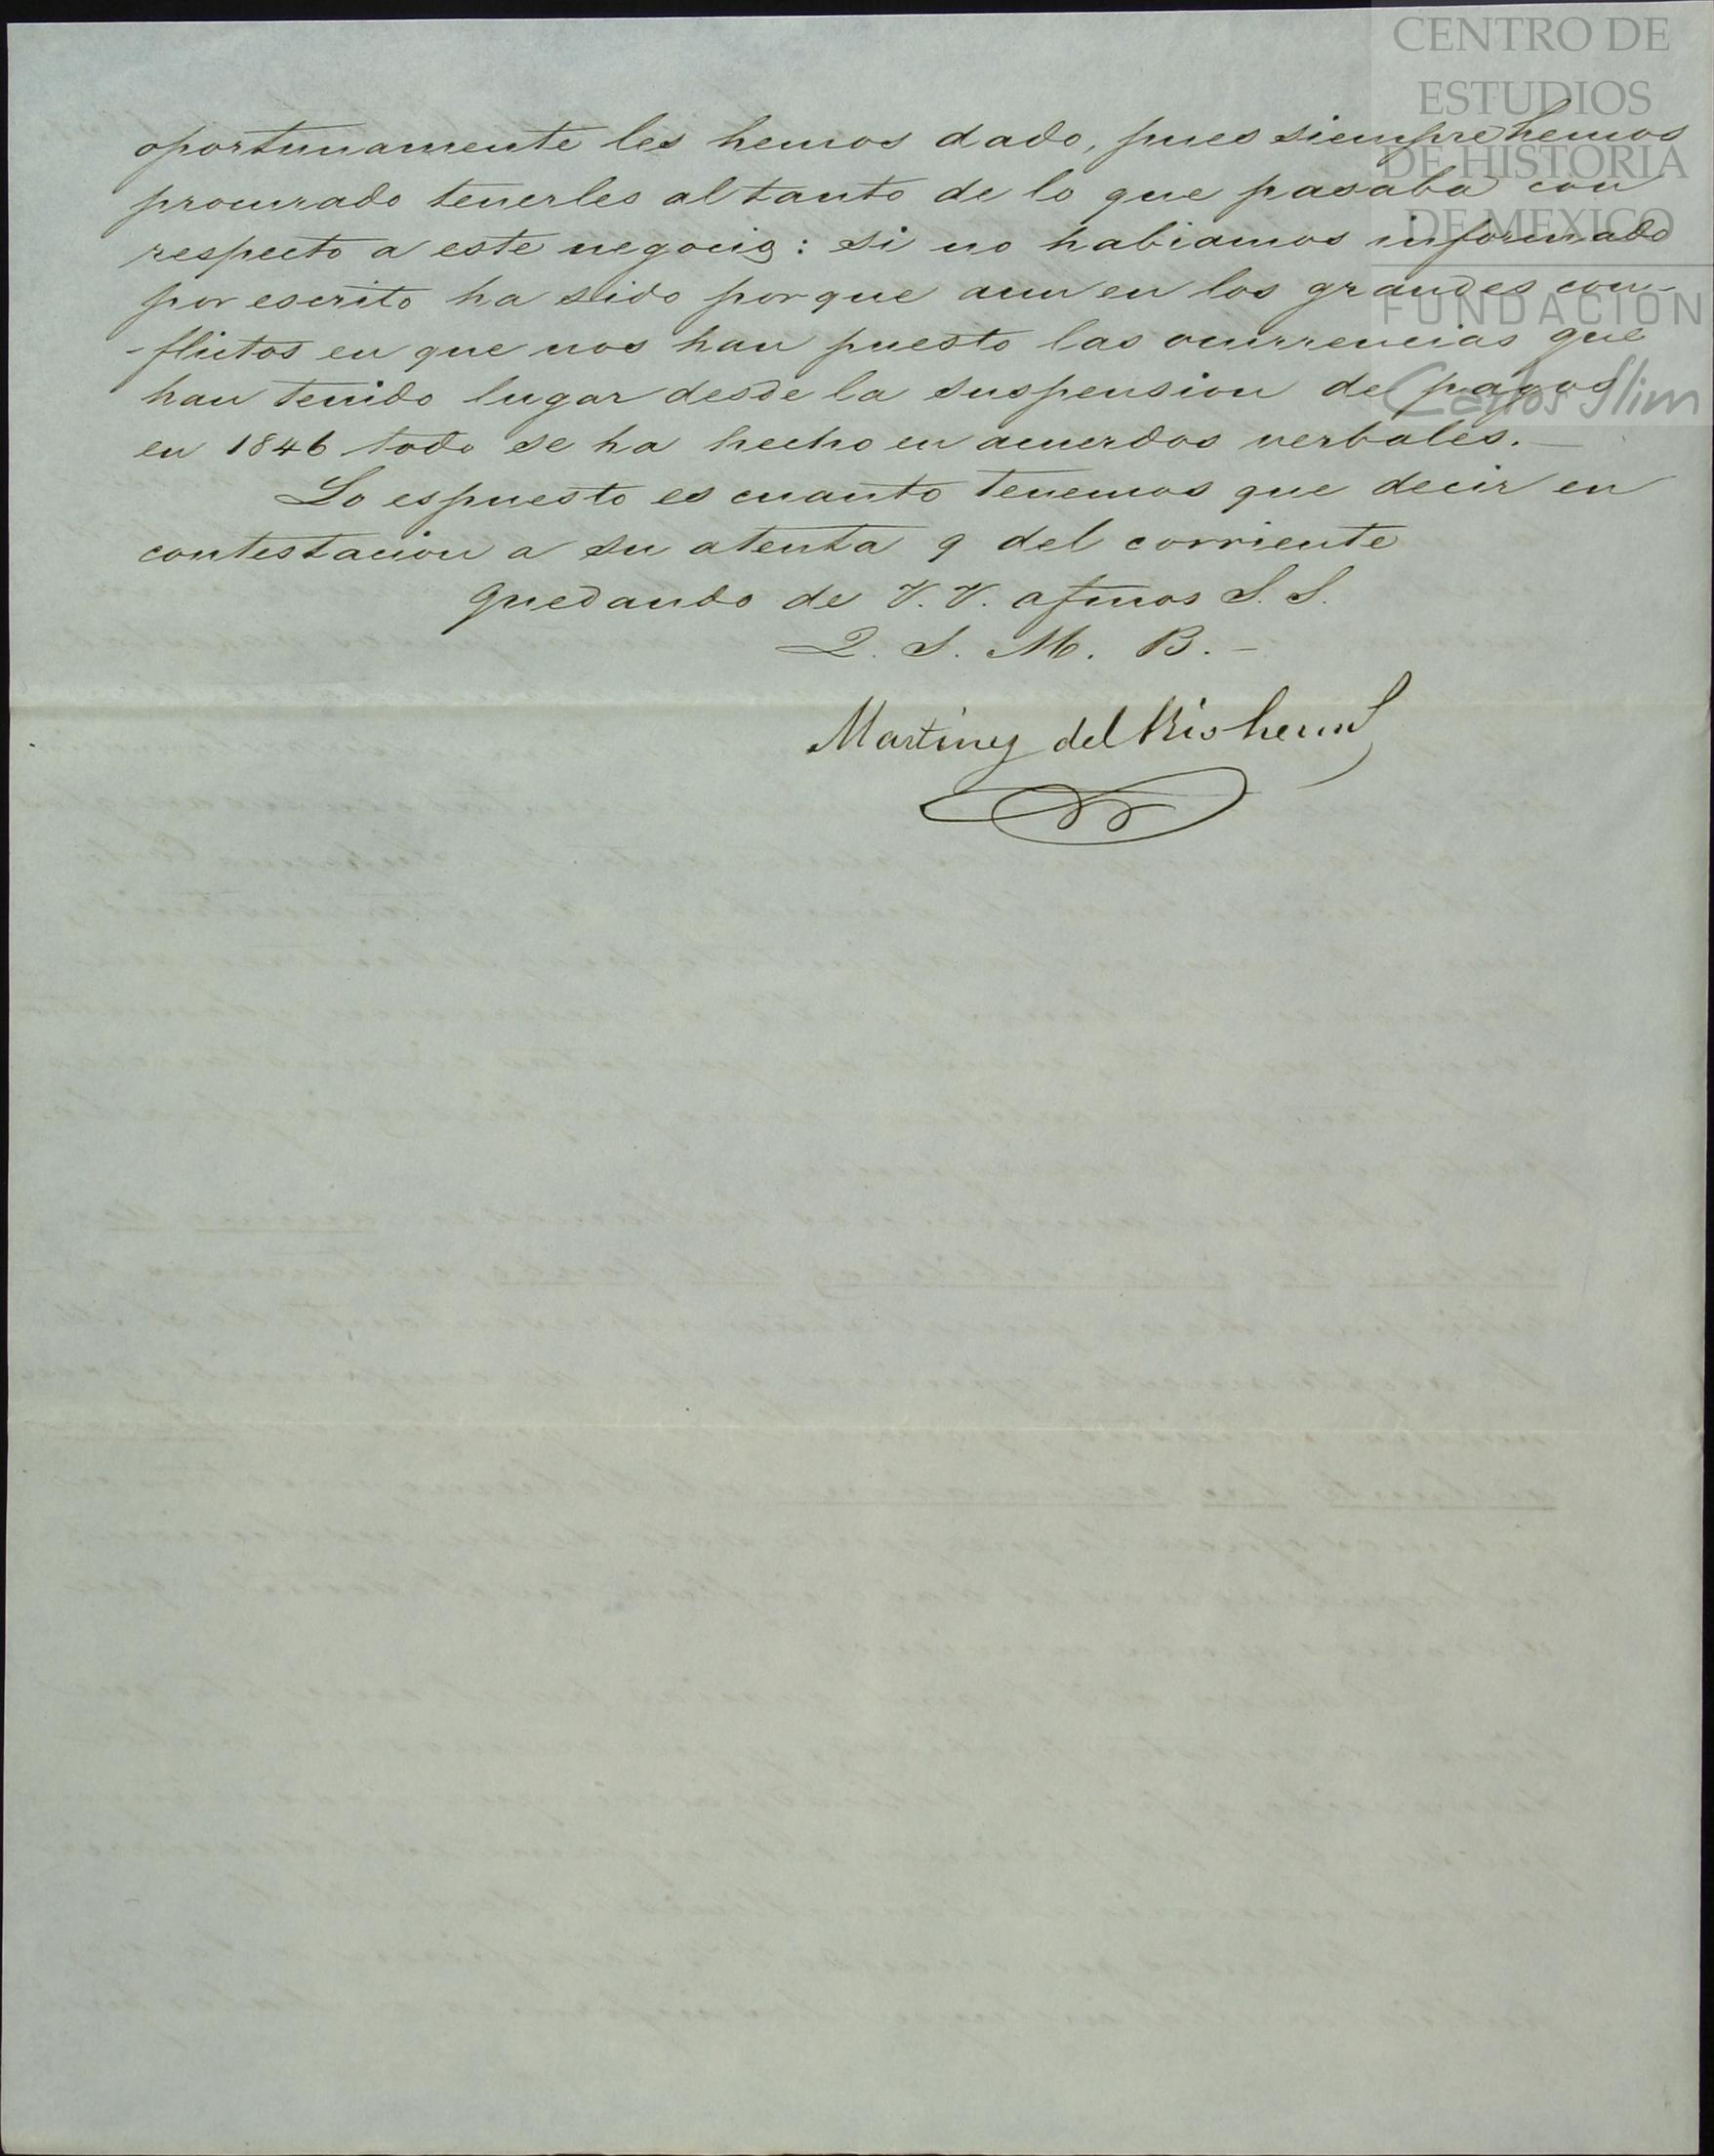 CENTRO DE
ESTUDIOS
DE HISTORIA
DE MEXICO
FUNDACION
Carlos Slim
oportunamente les hemos dado, pues siempre hemos
procurado tenerles al tanto de lo que pasaba con
respecto a este negocio: si no habiamos informado
por escrito ha sido porque aun en los grandes con-
-flictos en que nos han puesto las ocurrencias que
han tenido lugar desde la suspension de pagos
en 1846 todo se ha hecho en acuerdos verbales.—
Lo espuesto es cuanto tenemos que decir en
contestacion a su atenta 9 del corriente
quedando de V. V. afmos S. S.
Q. S. M. B. –
Martinez del Rio herms